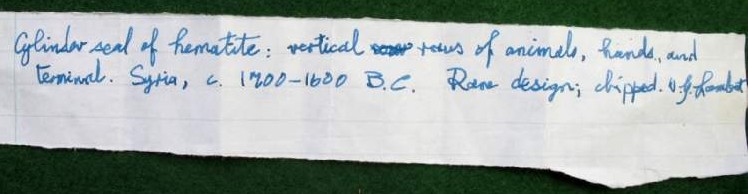 Cylinder seal of hematite: vertical rows of animals, hands, and
terminal. Syria, c. 1700-1600 B.C. Rare design; chipped. W.G. Lambert